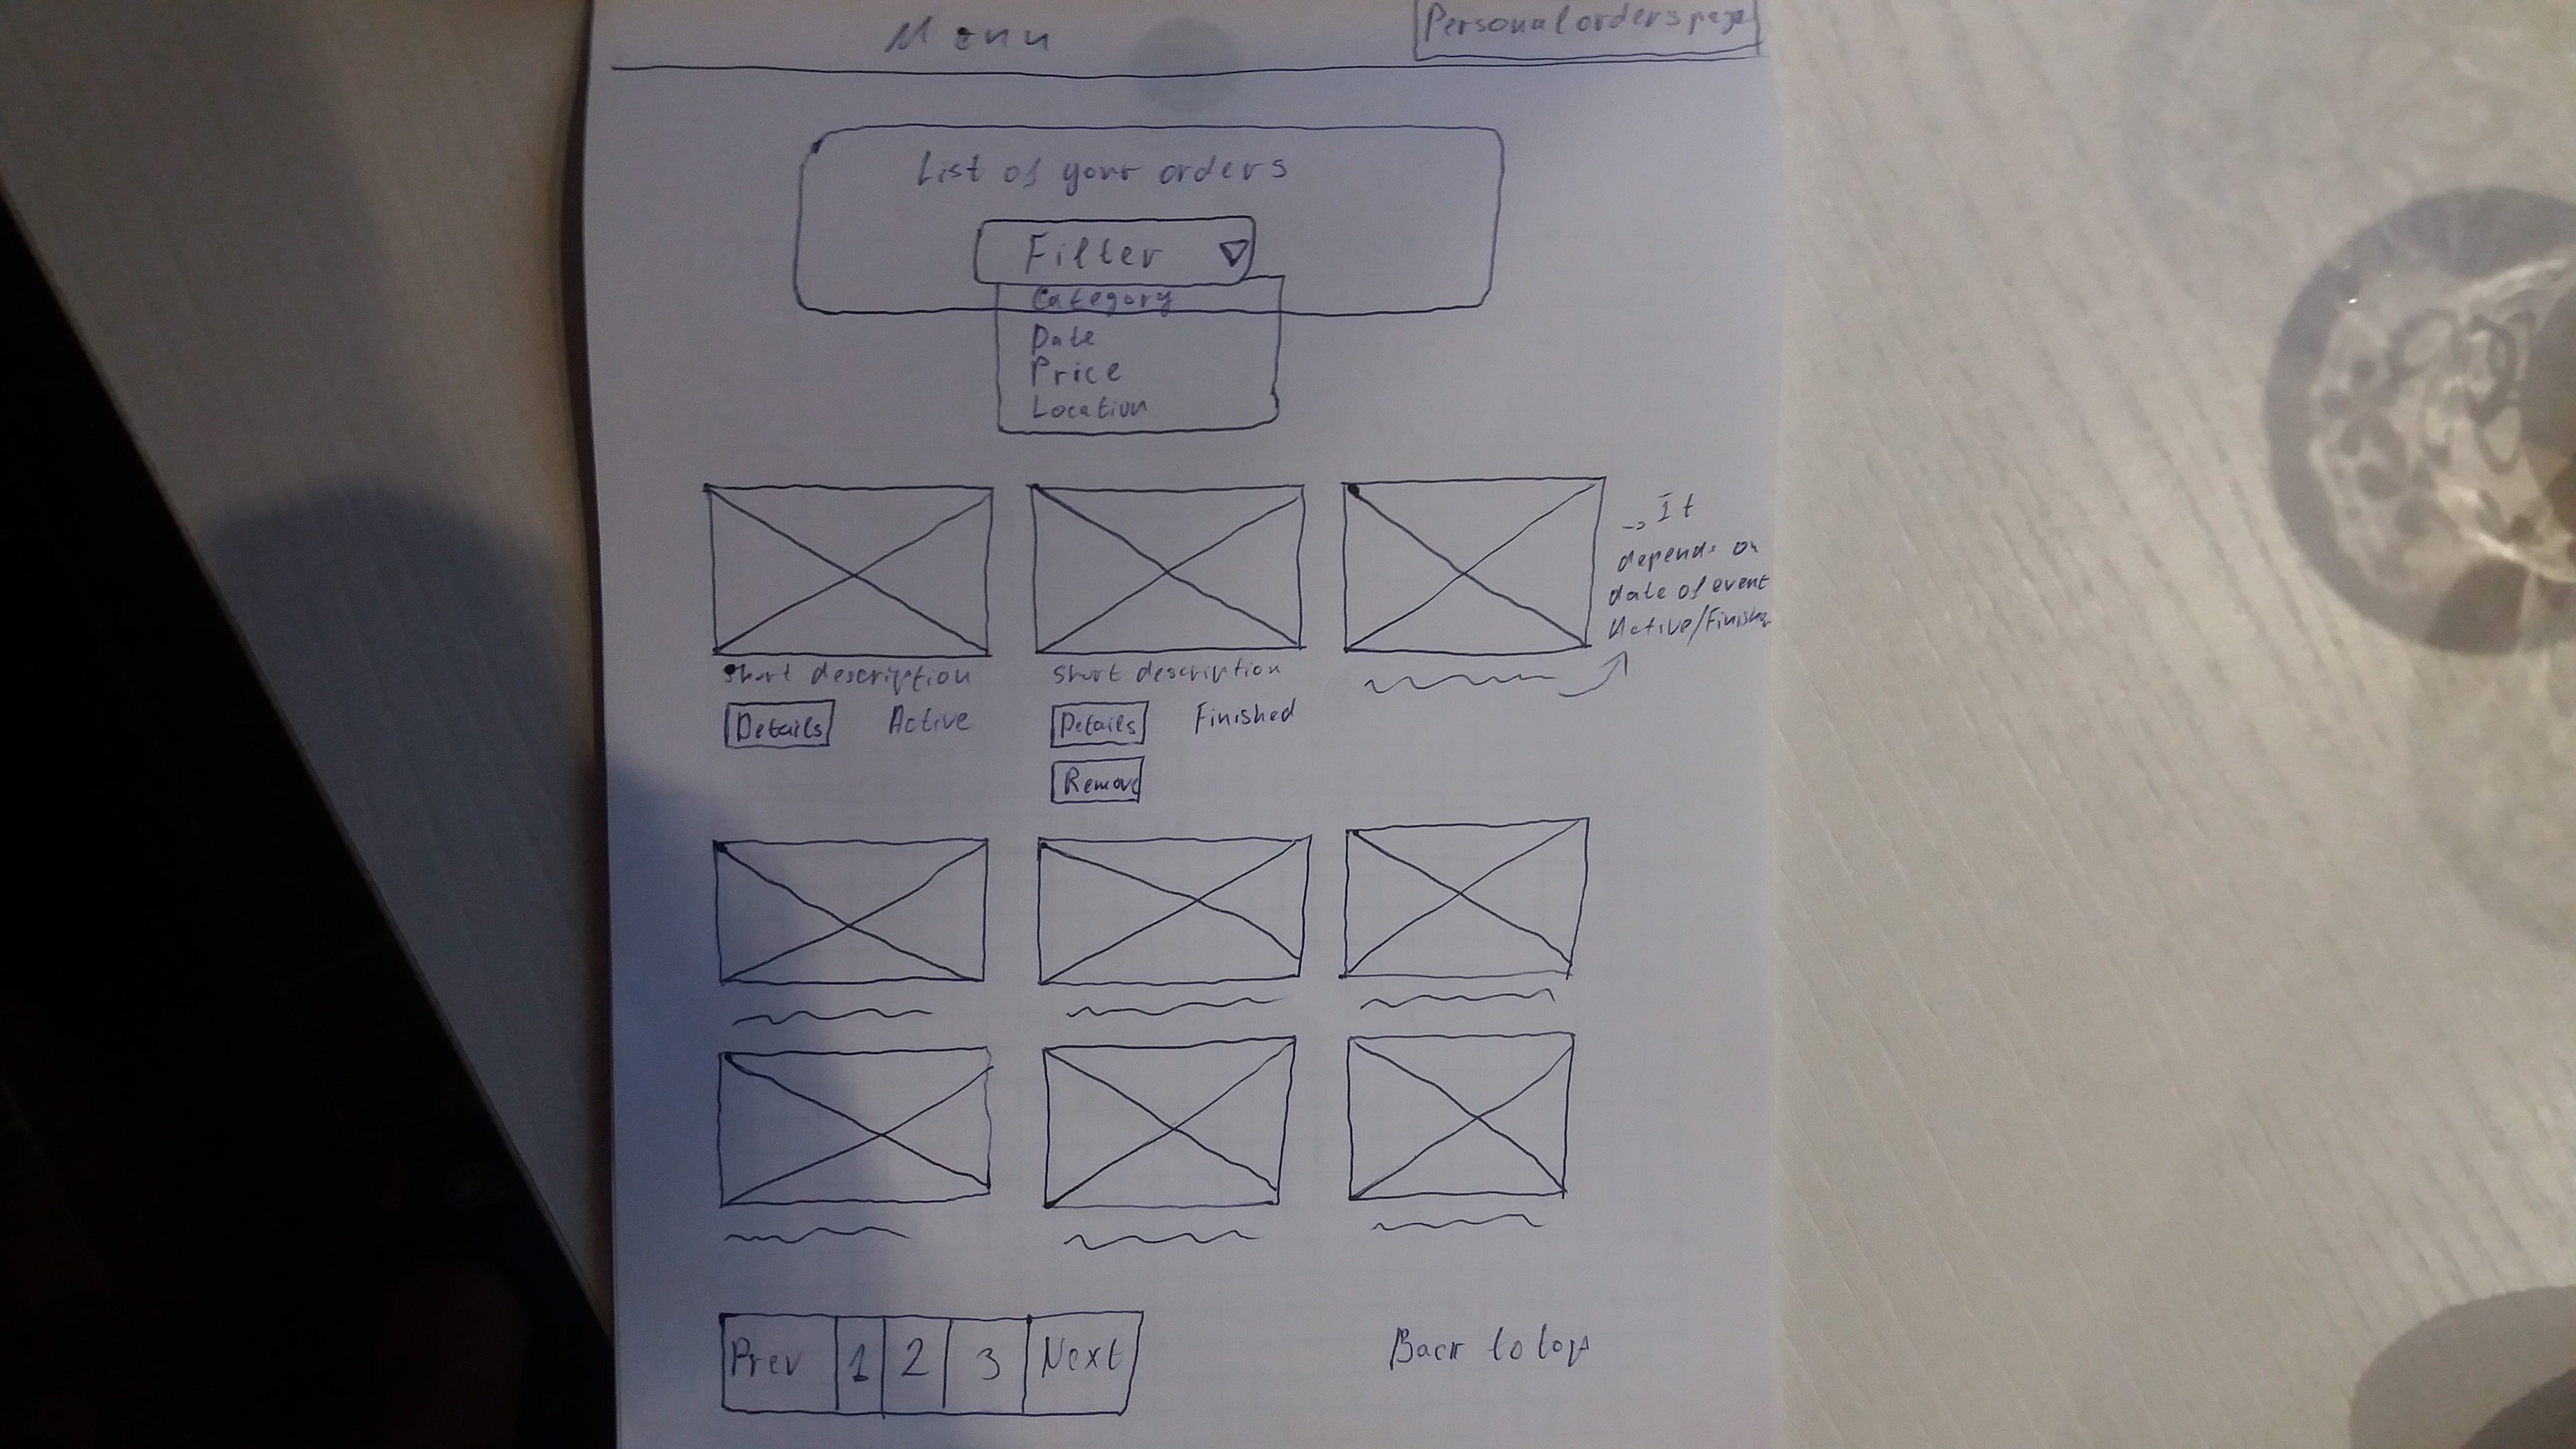 Menu
Personal orders page
List of your orders
Filter
Category
Date
Price
Location
short description
Details Active
short description
Details Finished
Remove
-> It
depends on
date of event
Active/Finished
Prev 1 2 3 Next
Back to top